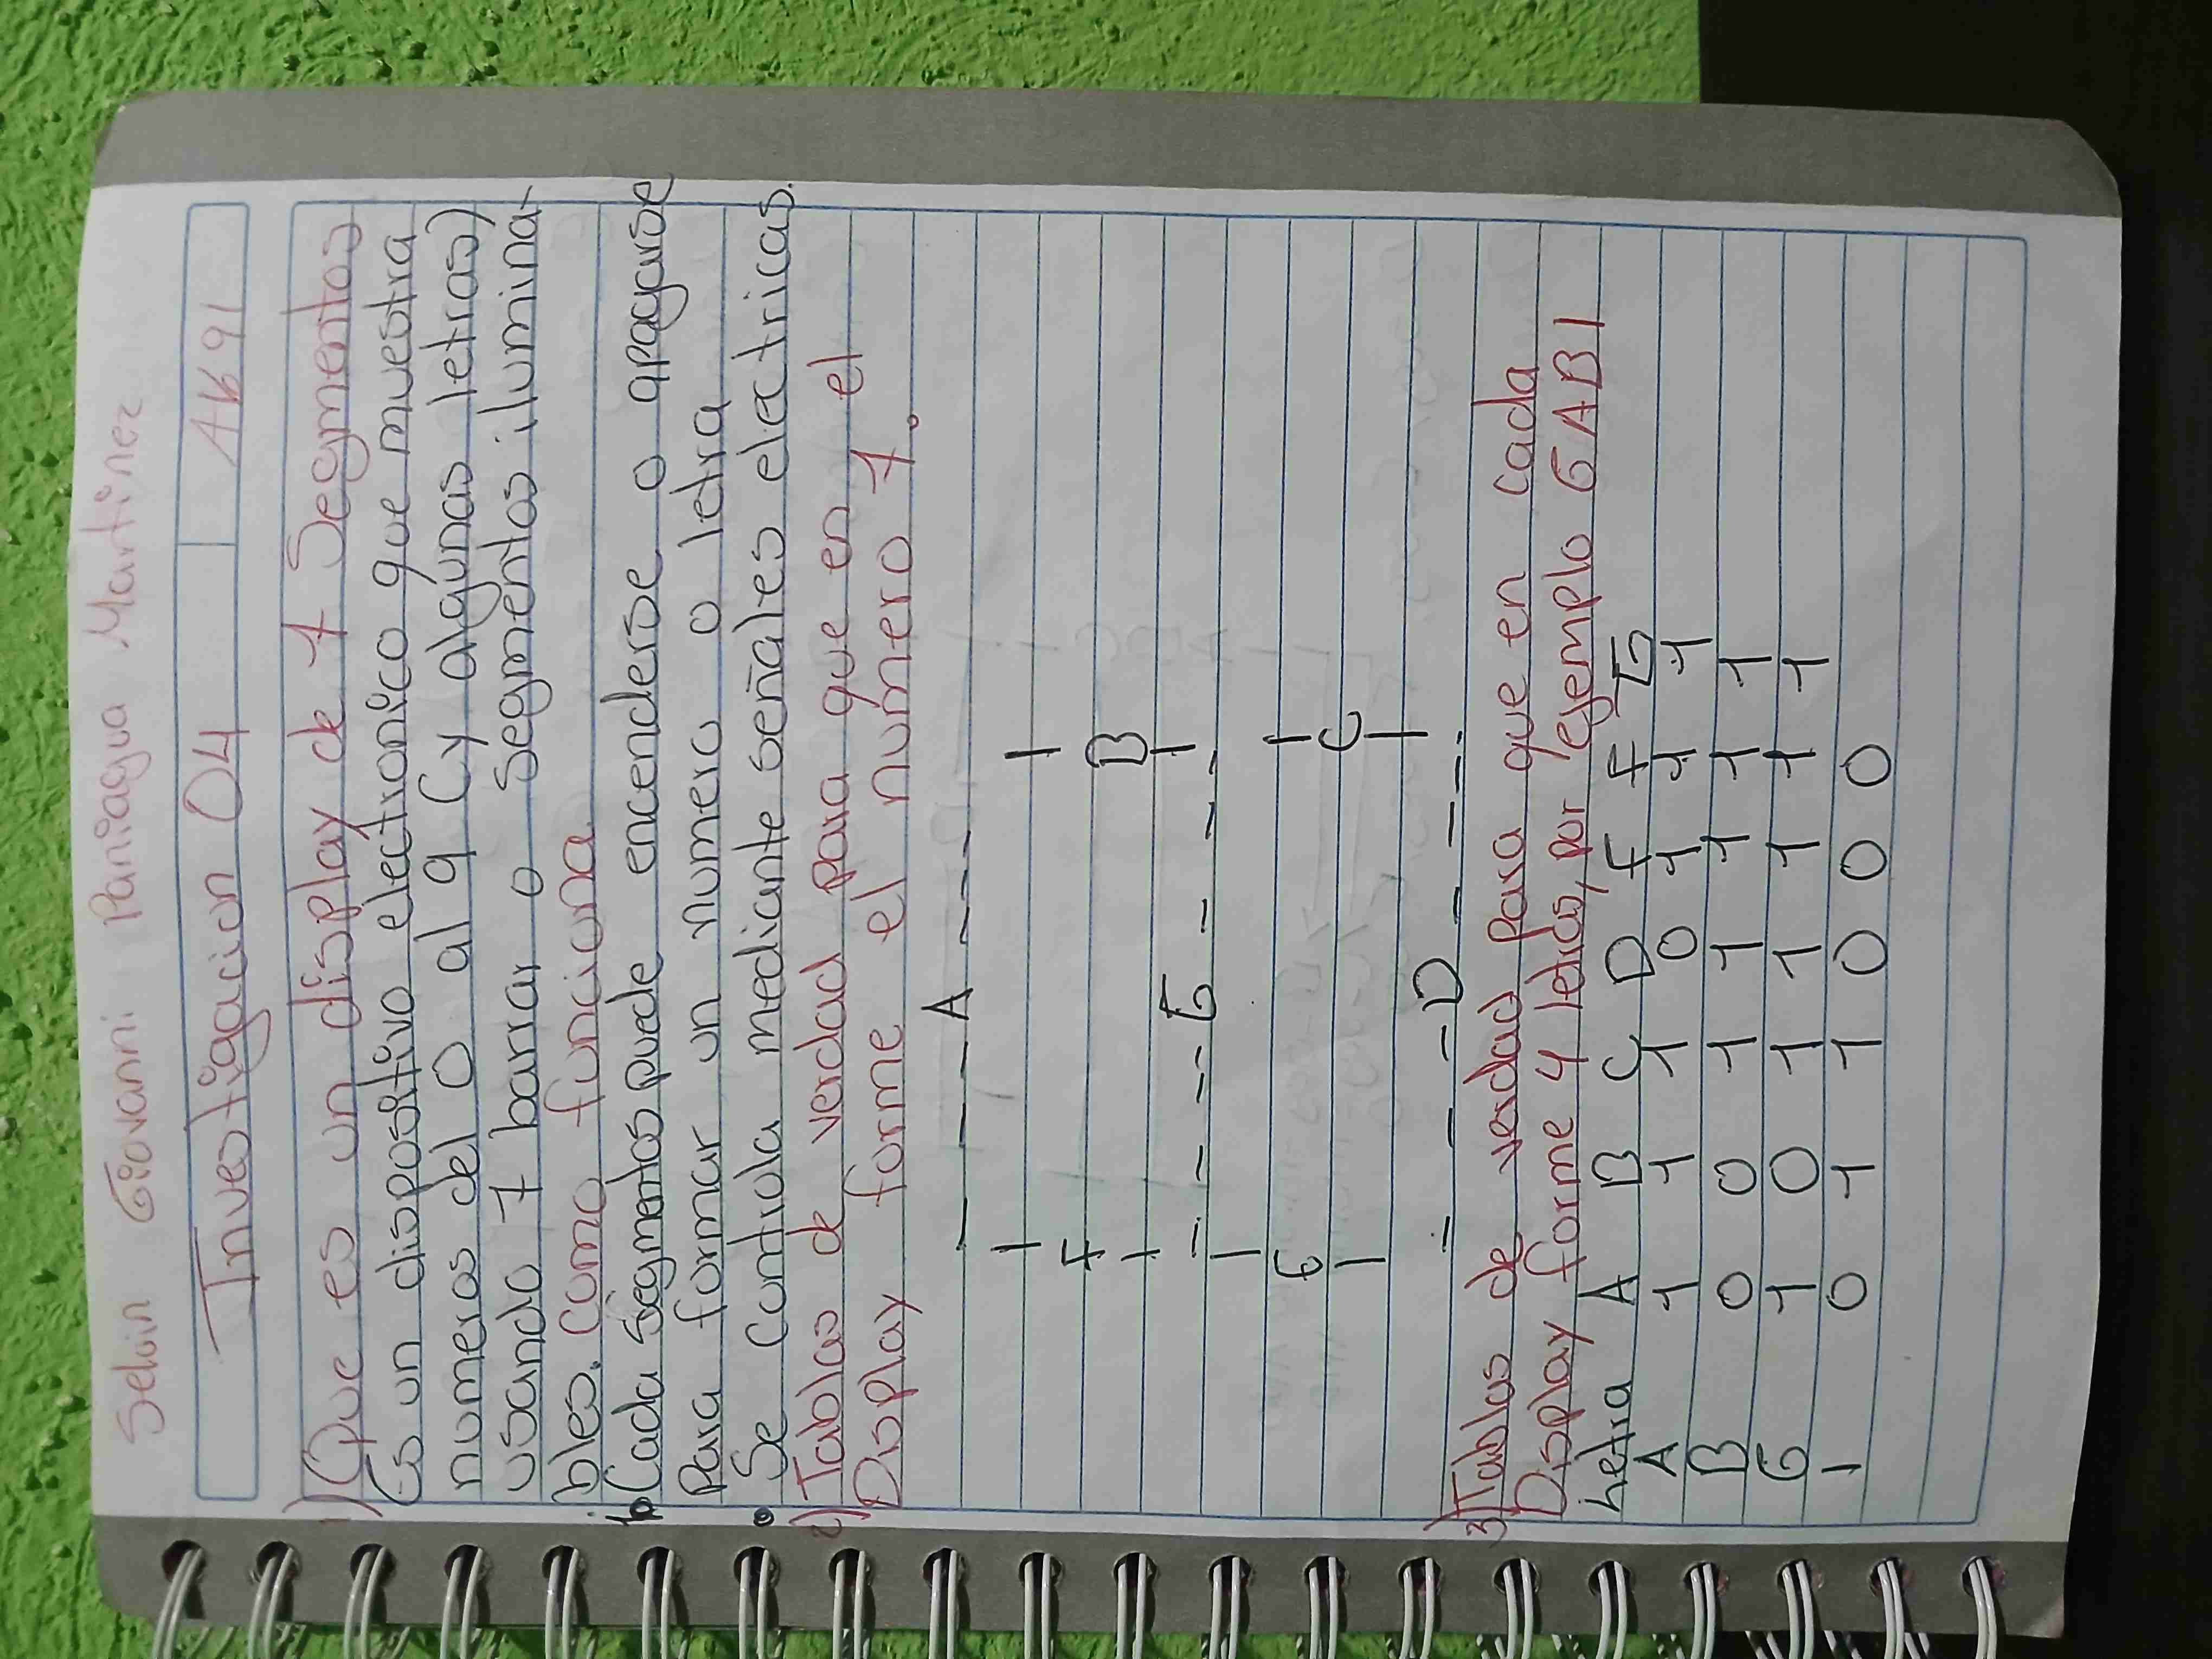 Selvin Giovanni Paniagua Martinez
Investigacion 04 AK91
1) Que es un display de 7 Segmentos
Es un dispositivo electronico que muestra
numeros del 0 al 9 (y algunas letras)
usando 7 barrar o segmentos ilumina-
bles. como funciona
Cada segmentos puede encenderse o apagarse
Para formar un numero o letra
• Se contiola mediante señales electricas.
2) Tablas de verdad para que en el
Display forme el numero 7.
A
F B
G
E C
D
3) Tablas de verdad para que en cada
Display forme 4 letras, por ejemplo GABI
Letra A B C D F F G
A 1 1 1 0 1 1 1
B 0 0 1 1 1 1 1
G 1 0 1 1 1 1 1
I 0 1 1 0 0 0